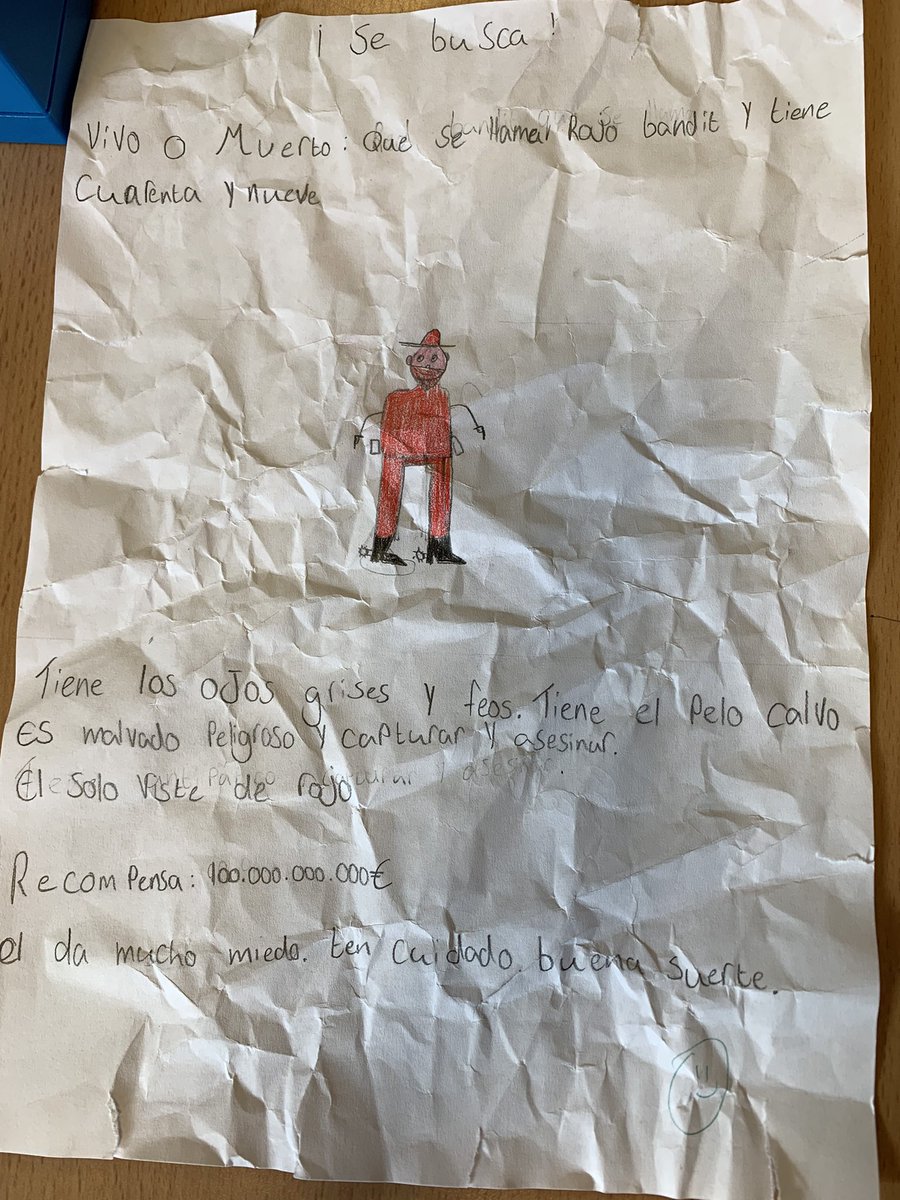 ¡ Se busca!
Vivo o Muerto: Que se llamar Rojo bandit y tiene
Cuarenta y nueve
Tiene los ojos grises y feos. Tiene el Pelo calvo
Es malvado Peligroso y capturar y asesinar.
El solo viste de rojo
Recompensa: 100.000.000.000€
el da mucho miedo. ten cuidado. buena suerte.